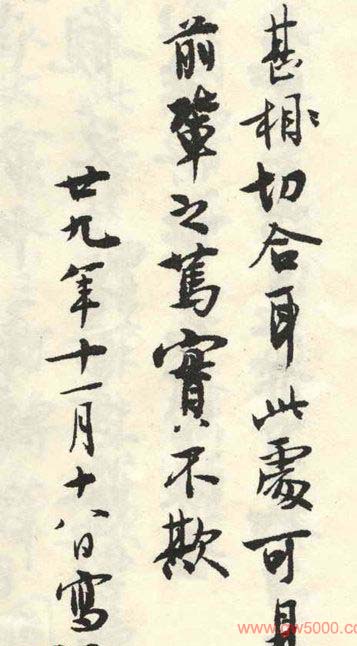 甚相切合耳此處可見
前輩之篤實不欺
廿九年十一月十八日寫
www.gw5000.com